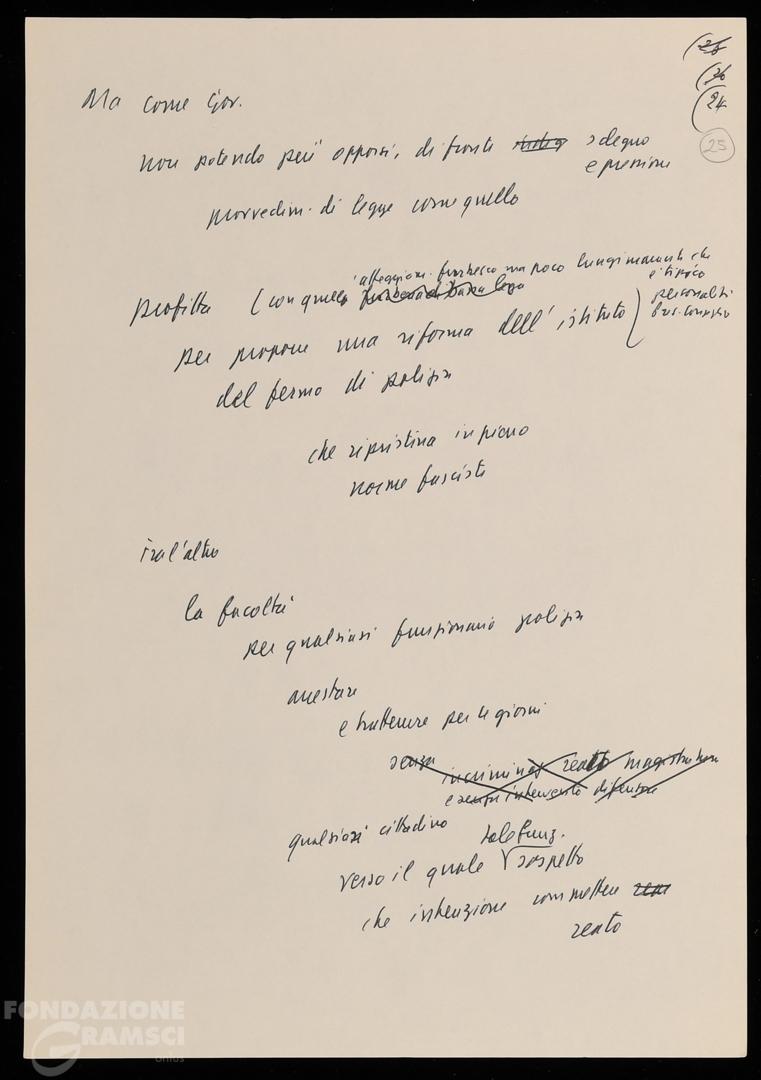 (28
(26
(24
25
Ma come Gov.
non potendo più opporsi, di fronte sdegno
e pressione
provvedim. di legge come quello
atteggiam. furbesco ma poco lungimirante che
è tipico
profitta (con quello furberia di bassa lega personalità
per proporre una riforma dell'istituto)
del fermo di polizia
che ripristina in pieno
norme fasciste
Tra l'altro
la facoltà
per qualsiasi funzionario polizia
arrestare
e trattenere per 4 giorni
senza incriminaz reato magistratura
e senza intervento difensore
qualsiasi cittadino
tale funz.
verso il quale sospetto
che intenzione commettere reato
reato
FONDAZIONE
GRAMSCI
onlus